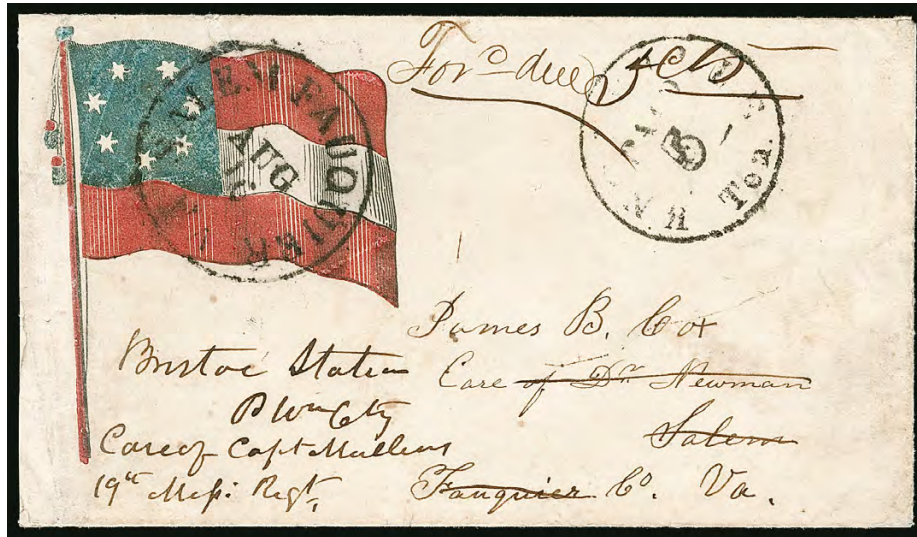 For'd due 5 cts
FAUQUIER
AUG
16
PAID
5
N.R Ten.
James B. Cox
Care of Dr. Newman
Salem
Fauquier Co. Va.
Bristoe Station
P Wm Cty
Care of Capt Mullens
19th Missi Regt.